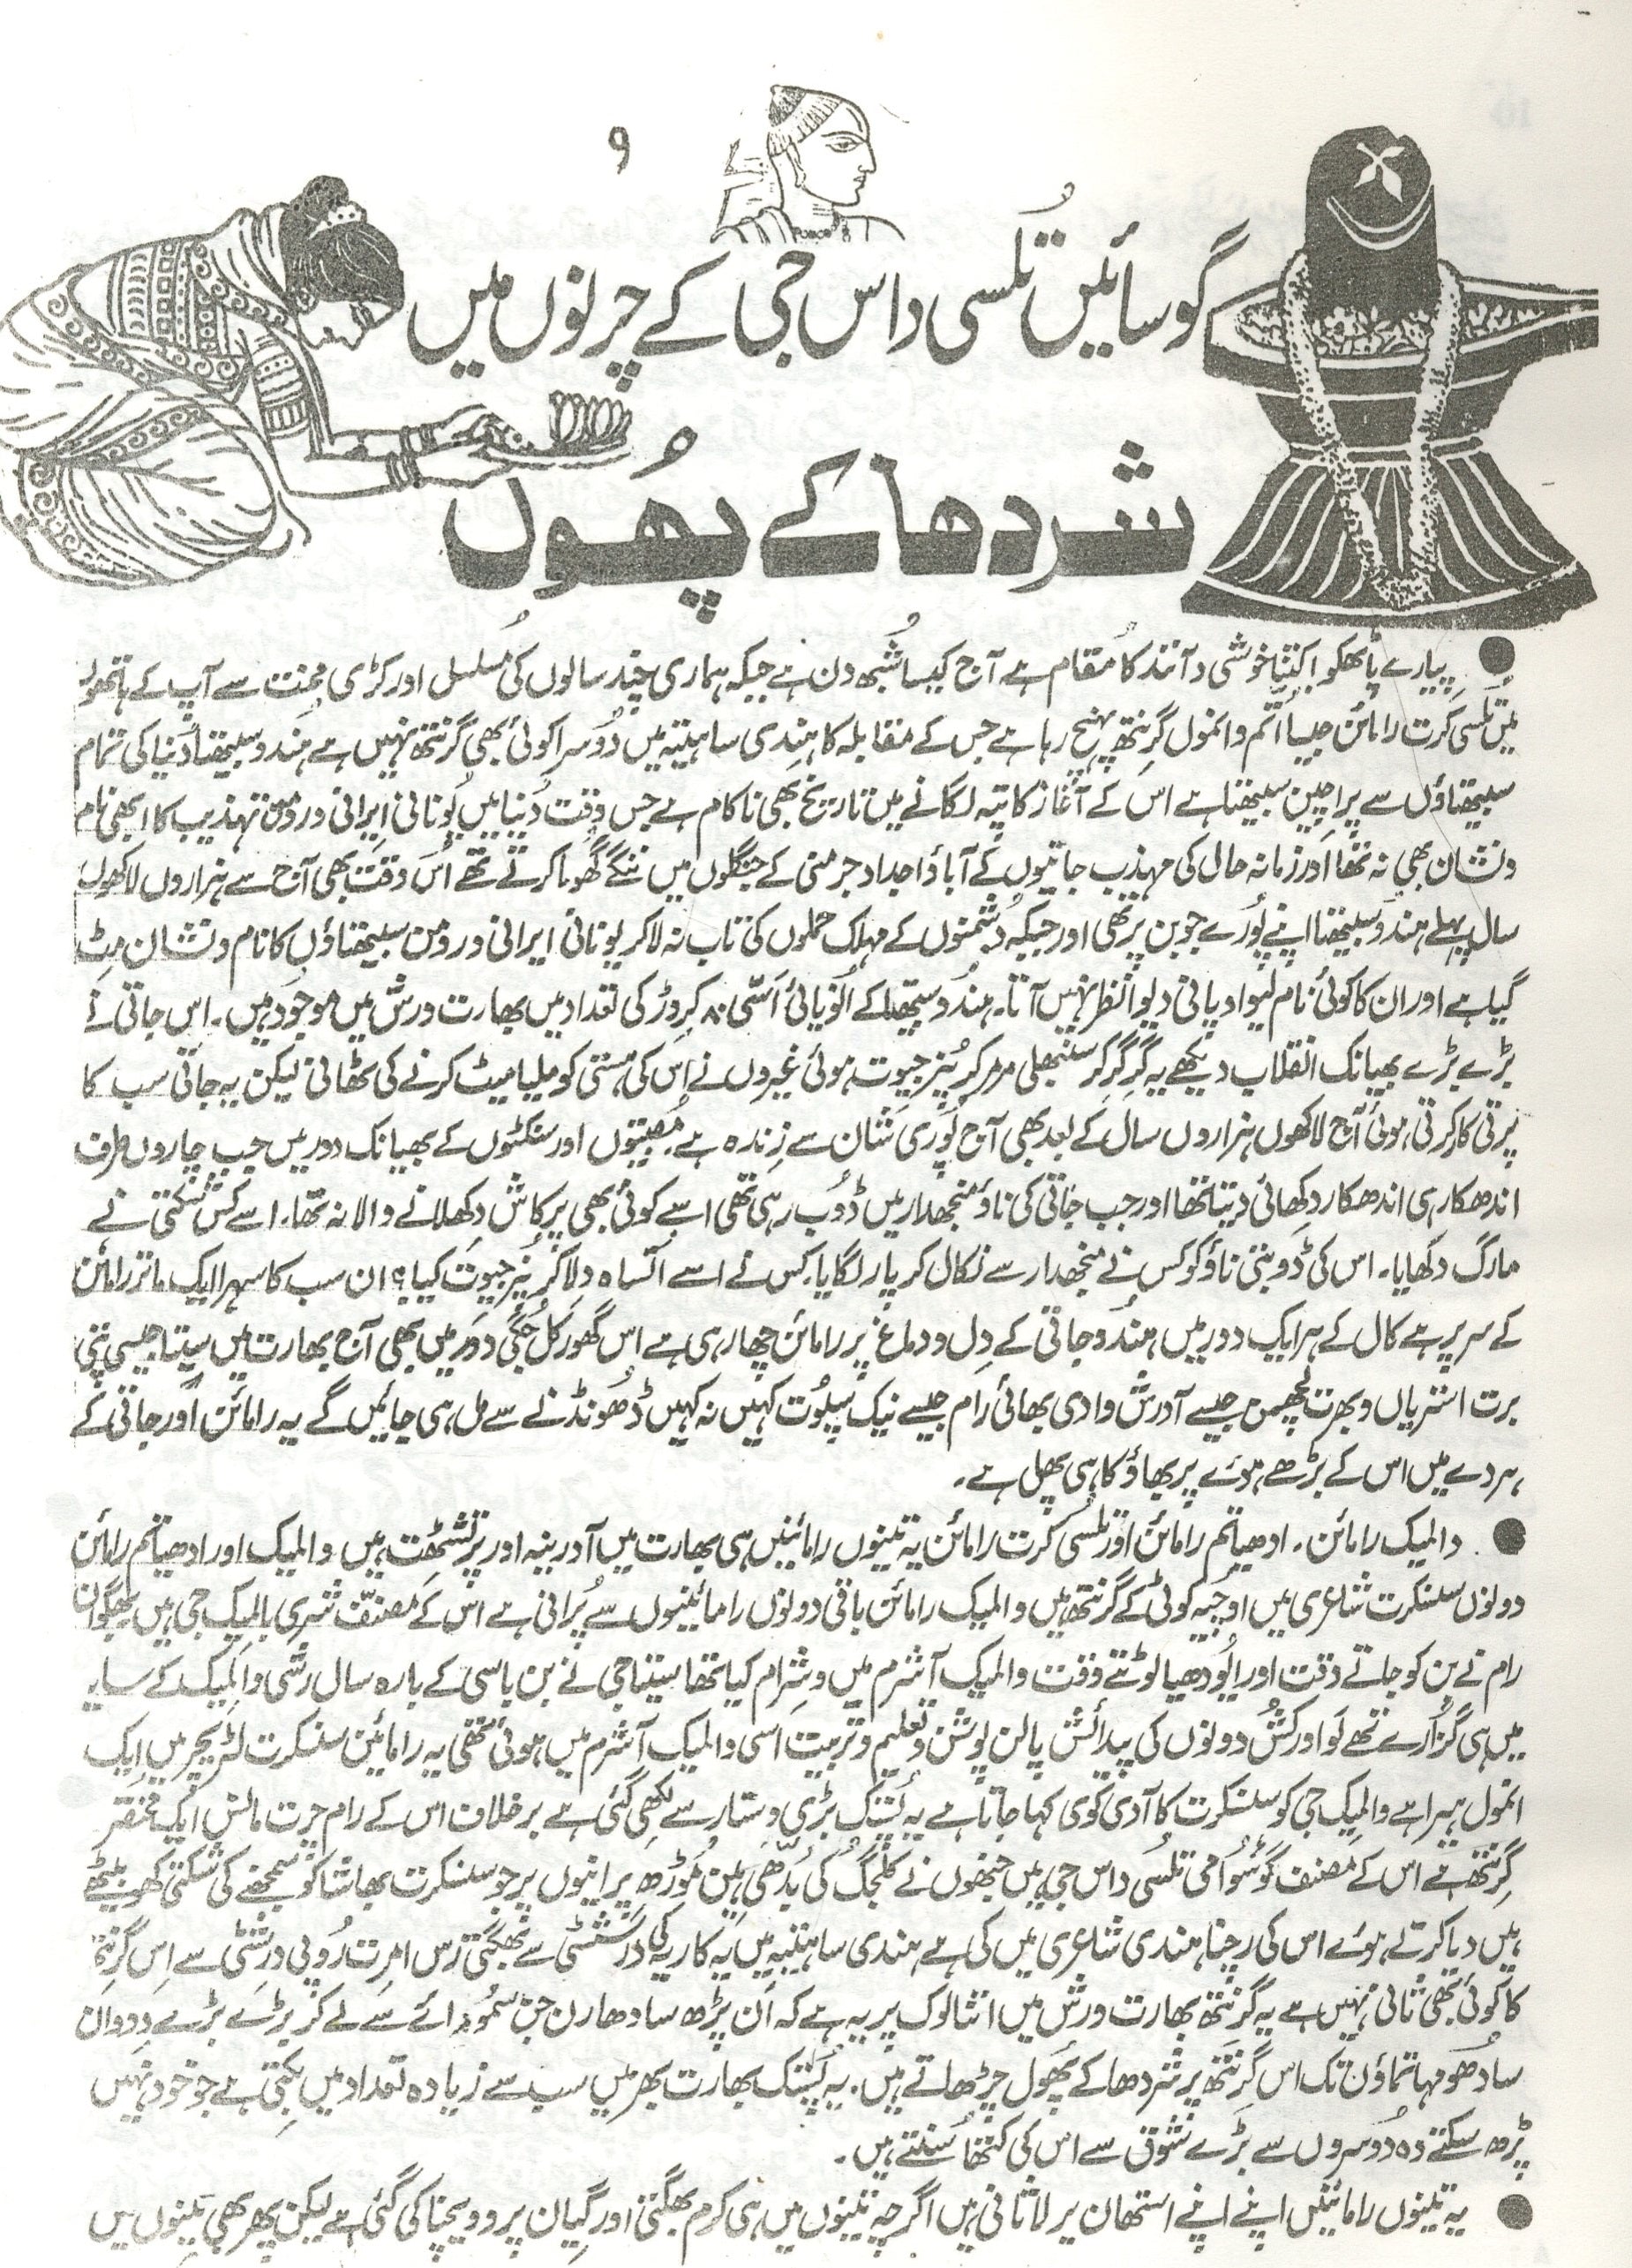 ۹
گوسائیں تُلسی داس جی کے چرنوں میں
شردھا کے پھُول
● پیارے پاٹھکو! کِتنا خوشی و آنند کا مُقام ہے آج کیسا شُبھ دن ہے جبکہ ہماری چند سالوں کی مُسلسل اور کڑی محنت سے آپ کے ہاتھوں
میں تُلسی کرت رامائن جیسا اُتم و انمول گرنتھ پہنچ رہا ہے جس کے مقابلہ کا ہندی ساہتیہ میں دُوسرا کوئی بھی گرنتھ نہیں ہے ہندو سبھیتا دُنیا کی تمام
سبھیتاؤں سے پراچین سبھیتا ہے اس کے آغاز کا پتہ لگانے میں تاریخ بھی ناکام ہے جس وقت دُنیا میں یُونانی ایرانی و رومن تہذیب کا ابھی نام
و نشان بھی نہ تھا اور زمانہ حال کی مہذب جاتیوں کے آباؤ اجداد جرمنی کے جنگلوں میں ننگے گھُوما کرتے تھے اُس وقت بھی آج سے ہزاروں لاکھوں
سال پہلے ہندو سبھیتا اپنے پُورے جوبن پر تھی اور جبکہ دُشمنوں کے مہلک حملوں کی تاب نہ لاکر یونانی ایرانی و رومن سبھیتاؤں کا نام و نشان مِٹ
گیا ہے اور ان کا کوئی نام لیوا و پانی دیوا نظر نہیں آتا۔ ہندو سبھیتا کے انُویائی اَسّی ۸۰ کروڑ کی تعداد میں بھارت ورش میں موجُود ہیں۔ اِس جاتی نے
بڑے بڑے بھیانک انقلاب دیکھے یہ گر گر کر سنبھلی مر مر کر پُنر جیوت ہوئی غیروں نے اِس کی ہستی کو ملیا میٹ کرنے کی ٹھانی لیکن یہ جاتی سب کا
پرتی کار کرتی ہوئی آج لاکھوں ہزاروں سال کے بعد بھی آج پُوری شان سے زِندہ ہے۔ مُصیبتوں اور سنکٹوں کے بھیانک دور میں جب چاروں طرف
اندھکار ہی اندھکار دِکھائی دیتا تھا اور جب جاتی کی ناؤ منجھدار میں ڈوُب رہی تھی اسے کوئی بھی پرکاش دِکھلانے والا نہ تھا۔ اسے کِس شکتی نے
مارگ دِکھایا۔ اس کی ڈوبتی ناؤ کو کس نے منجھدار سے نکال کر پار لگایا۔ کس نے اسے اُتساہ دِلا کر پُنر جیوت کیا؟ ان سب کا سہرا ایک ماتر رامائن
کے سر پر ہے کال کے ہر ایک دور میں ہندو جاتی کے دِل و دماغ پر رامائن چھا رہی ہے اس گھور کلُ جُگی دور میں بھی آج بھارت میں سیتا جیسی پتی
برت استریاں و بھرت لچھمن جیسے آدرش وادی بھائی رام جیسے نیک سپُوت کہیں نہ کہیں ڈھُونڈنے سے مل ہی جائیں گے یہ رامائن اور جاتی کے
ہردے میں اس کے بڑھے ہوئے پربھاؤ کا ہی پھل ہے۔
● والمیک رامائن۔ ادھیاتم رامائن اور تُلسی کرت رامائن یہ تینوں رامائنیں ہی بھارت میں آدرینہ اور پرتشٹھت ہیں والمیک اور ادھیاتم رامائن
دونوں سنسکرت شاعری میں اوچیہ کوٹی کے گرنتھ ہیں والمیک رامائن باقی دونوں رامائنیوں سے پُرانی ہے اس کے مُصنّف شری بالمیک جی ہیں بھگوان
رام نے بن کو جاتے وقت اور ایُودھیا لوٹتے وقت والمیک آشرم میں وِشرام کیا تھا سیتا جی نے بن باسی کے بارہ سال رِشی والمیک کے سایہ
میں ہی گزُارے تھے لَو اور کُش دونوں کی پیدائش پالن پوشن و تعلیم و تربیت اسی والمیک آشرم میں ہوئی تھی یہ رامائین سنسکرت لٹریچر میں ایک
انمول ہیرا ہے والمیک جی کو سنسکرت کا آدی کوی کہا جاتا ہے یہ پُستک بڑی وستار سے لکھی گئی ہے برخلاف اس کے رام چرت مانس ایک مختصر
گرنتھ ہے اس کے مُصنف گوسُوامی تلسُی داس جی ہیں جنھوں نے کلُجگ کی بُدّھی ہین مُوڑھ پرانیوں پر جو سنسکرت بھاشا کو سمجھنے کی شکتی کھو بیٹھے
ہیں دیا کرتے ہوئے اس کی رچنا ہندی شاعری میں کی ہے ہندی ساہتیہ میں یہ کاریہ کی درشٹی سے بھگتی رَس امرت رُوپی درشٹی سے اِس گرنتھ
کا کوئی بھی ثانی نہیں ہے یہ گرنتھ بھارت ورش میں اتنا لوک پریہ ہے کہ ان پڑھ سادھارن جن سمُودائے سے لے کر بڑے بڑے وِدوان
سادُھو مہاتماؤں تک اس گرنتھ پر شردھا کے پھُول چڑھاتے ہیں۔ یہ پُستک بھارت بھر میں سب سے زیادہ تعداد میں بکتی ہے جو خود نہیں
پڑھ سکتے وہ دُوسروں سے بڑے شوق سے اس کی کتھا سُنتے ہیں۔
● یہ تینوں رامائنیں اپنے اپنے استھان پر لاثانی ہیں اگرچہ تینوں میں ہی کرم بھگتی اور گیان پر وویچنا کی گئی ہے لیکن پھر بھی تینوں میں